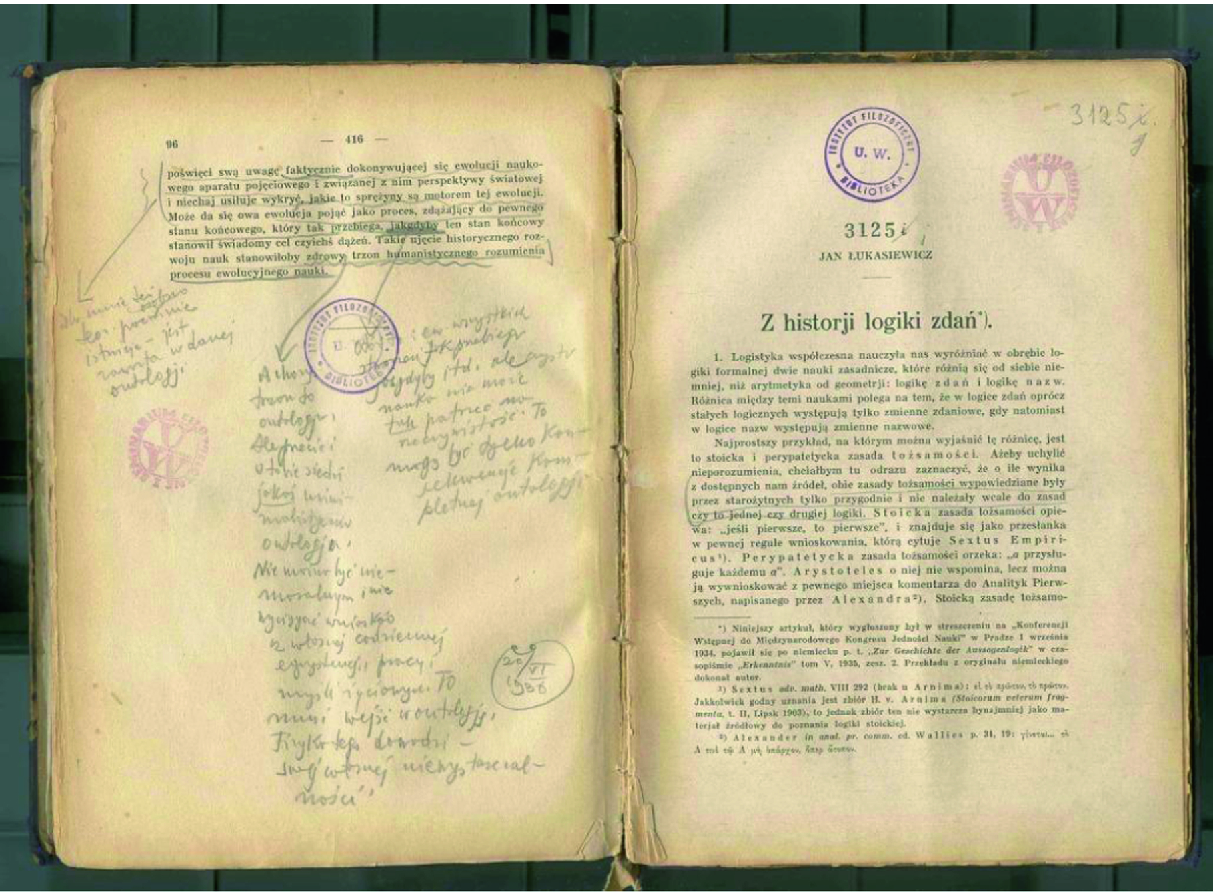 96
— 416 —
poświęci swą uwagę faktycznie dokonywującej się ewolucji nauko-
wego aparatu pojęciowego i związanej z nim perspektywy światowej
i niechaj usiłuje wykryć, jakie to sprężyny są motorem tej ewolucji.
Może da się owa ewolucja pojąć jako proces, zdążający do pewnego
stanu końcowego, który tak przebiega, jakgdyby ten stan końcowy
stanowił świadomy cel czyichś dążeń. Takie ujęcie historycznego roz-
woju nauk stanowiłoby zdrowy trzon humanistycznego rozumienia
procesu ewolucyjnego nauki.
istnieje – jest
zawarta w danej
ontologji
INSTYTUT FILOZOFICZNY
U. W.
BIBLIOTEKA
trzon to
ontologia,
jakaś mini-
ontologia.
Nie można być nie-
moralnym i nie
wyciągać wniosków
z własnej codziennej
egzystencji, pracy,
myśli życiowych. To
musi wejść w ontologję,
swej własnej niewystarczal-
ności"
nauka nie może
tak patrzeć na
rzeczywistość. To
mogą być tylko kon-
sekwencje kom-
pletnej ontologji
20/VI
1956
3125
INSTYTUT FILOZOFICZNY
U. W.
BIBLIOTEKA
3125
JAN ŁUKASIEWICZ
Z historji logiki zdań*).
1. Logistyka współczesna nauczyła nas wyróżniać w obrębie lo-
giki formalnej dwie nauki zasadnicze, które różnią się od siebie nie-
mniej, niż arytmetyka od geometrji: logikę zdań i logikę nazw.
Różnica między temi naukami polega na tem, że w logice zdań oprócz
stałych logicznych występują tylko zmienne zdaniowe, gdy natomiast
w logice nazw występują zmienne nazwowe.
Najprostszy przykład, na którym można wyjaśnić tę różnicę, jest
to stoicka i perypatetycka zasada tożsamości. Ażeby uchylić
nieporozumienia, chciałbym tu odrazu zaznaczyć, że o ile wynika
z dostępnych nam źródeł, obie zasady tożsamości wypowiedziane były
przez starożytnych tylko przygodnie i nie należały wcale do zasad
czy to jednej czy drugiej logiki. Stoicka zasada tożsamości opie-
wa: „jeśli pierwsze, to pierwsze", i znajduje się jako przesłanka
w pewnej regule wnioskowania, którą cytuje Sextus Empiri-
cus¹). Perypatetycka zasada tożsamości orzeka: „a przysłu-
guje każdemu a". Arystoteles o niej nie wspomina, lecz można
ją wywnioskować z pewnego miejsca komentarza do Analityk Pierw-
szych, napisanego przez Alexandra²). Stoicką zasadę tożsamo-
*) Niniejszy artykuł, który wygłoszany był w streszczeniu na „Konferencji
Wstępnej do Międzynarodowego Kongresu Jedności Nauki" w Pradze 1 września
1934, pojawił się po niemiecku p. t. „Zur Geschichte der Aussagenlogik" w cza-
sopiśmie „Erkenntnis" tom V, 1935, zesz. 2. Przekładu z oryginału niemieckiego
dokonał autor.
¹) Sextus adv. math. VIII 292 (brak u Arnima): εἰ τὸ πρῶτον, τὸ πρῶτον.
Jakkolwiek godny uznania jest zbiór H. v. Arnima (Stoicorum veterum frag-
menta, t. II, Lipsk 1903), to jednak zbiór ten nie wystarcza bynajmniej jako ma-
terjał źródłowy do poznania logiki stoickiej.
²) Alexander in anal. pr. comm. ed. Wallies p. 34, 19: γίνεται... τὸ
Α τινὶ τῷ Α μὴ ὑπάρχον, ὅπερ ἄτοπον.